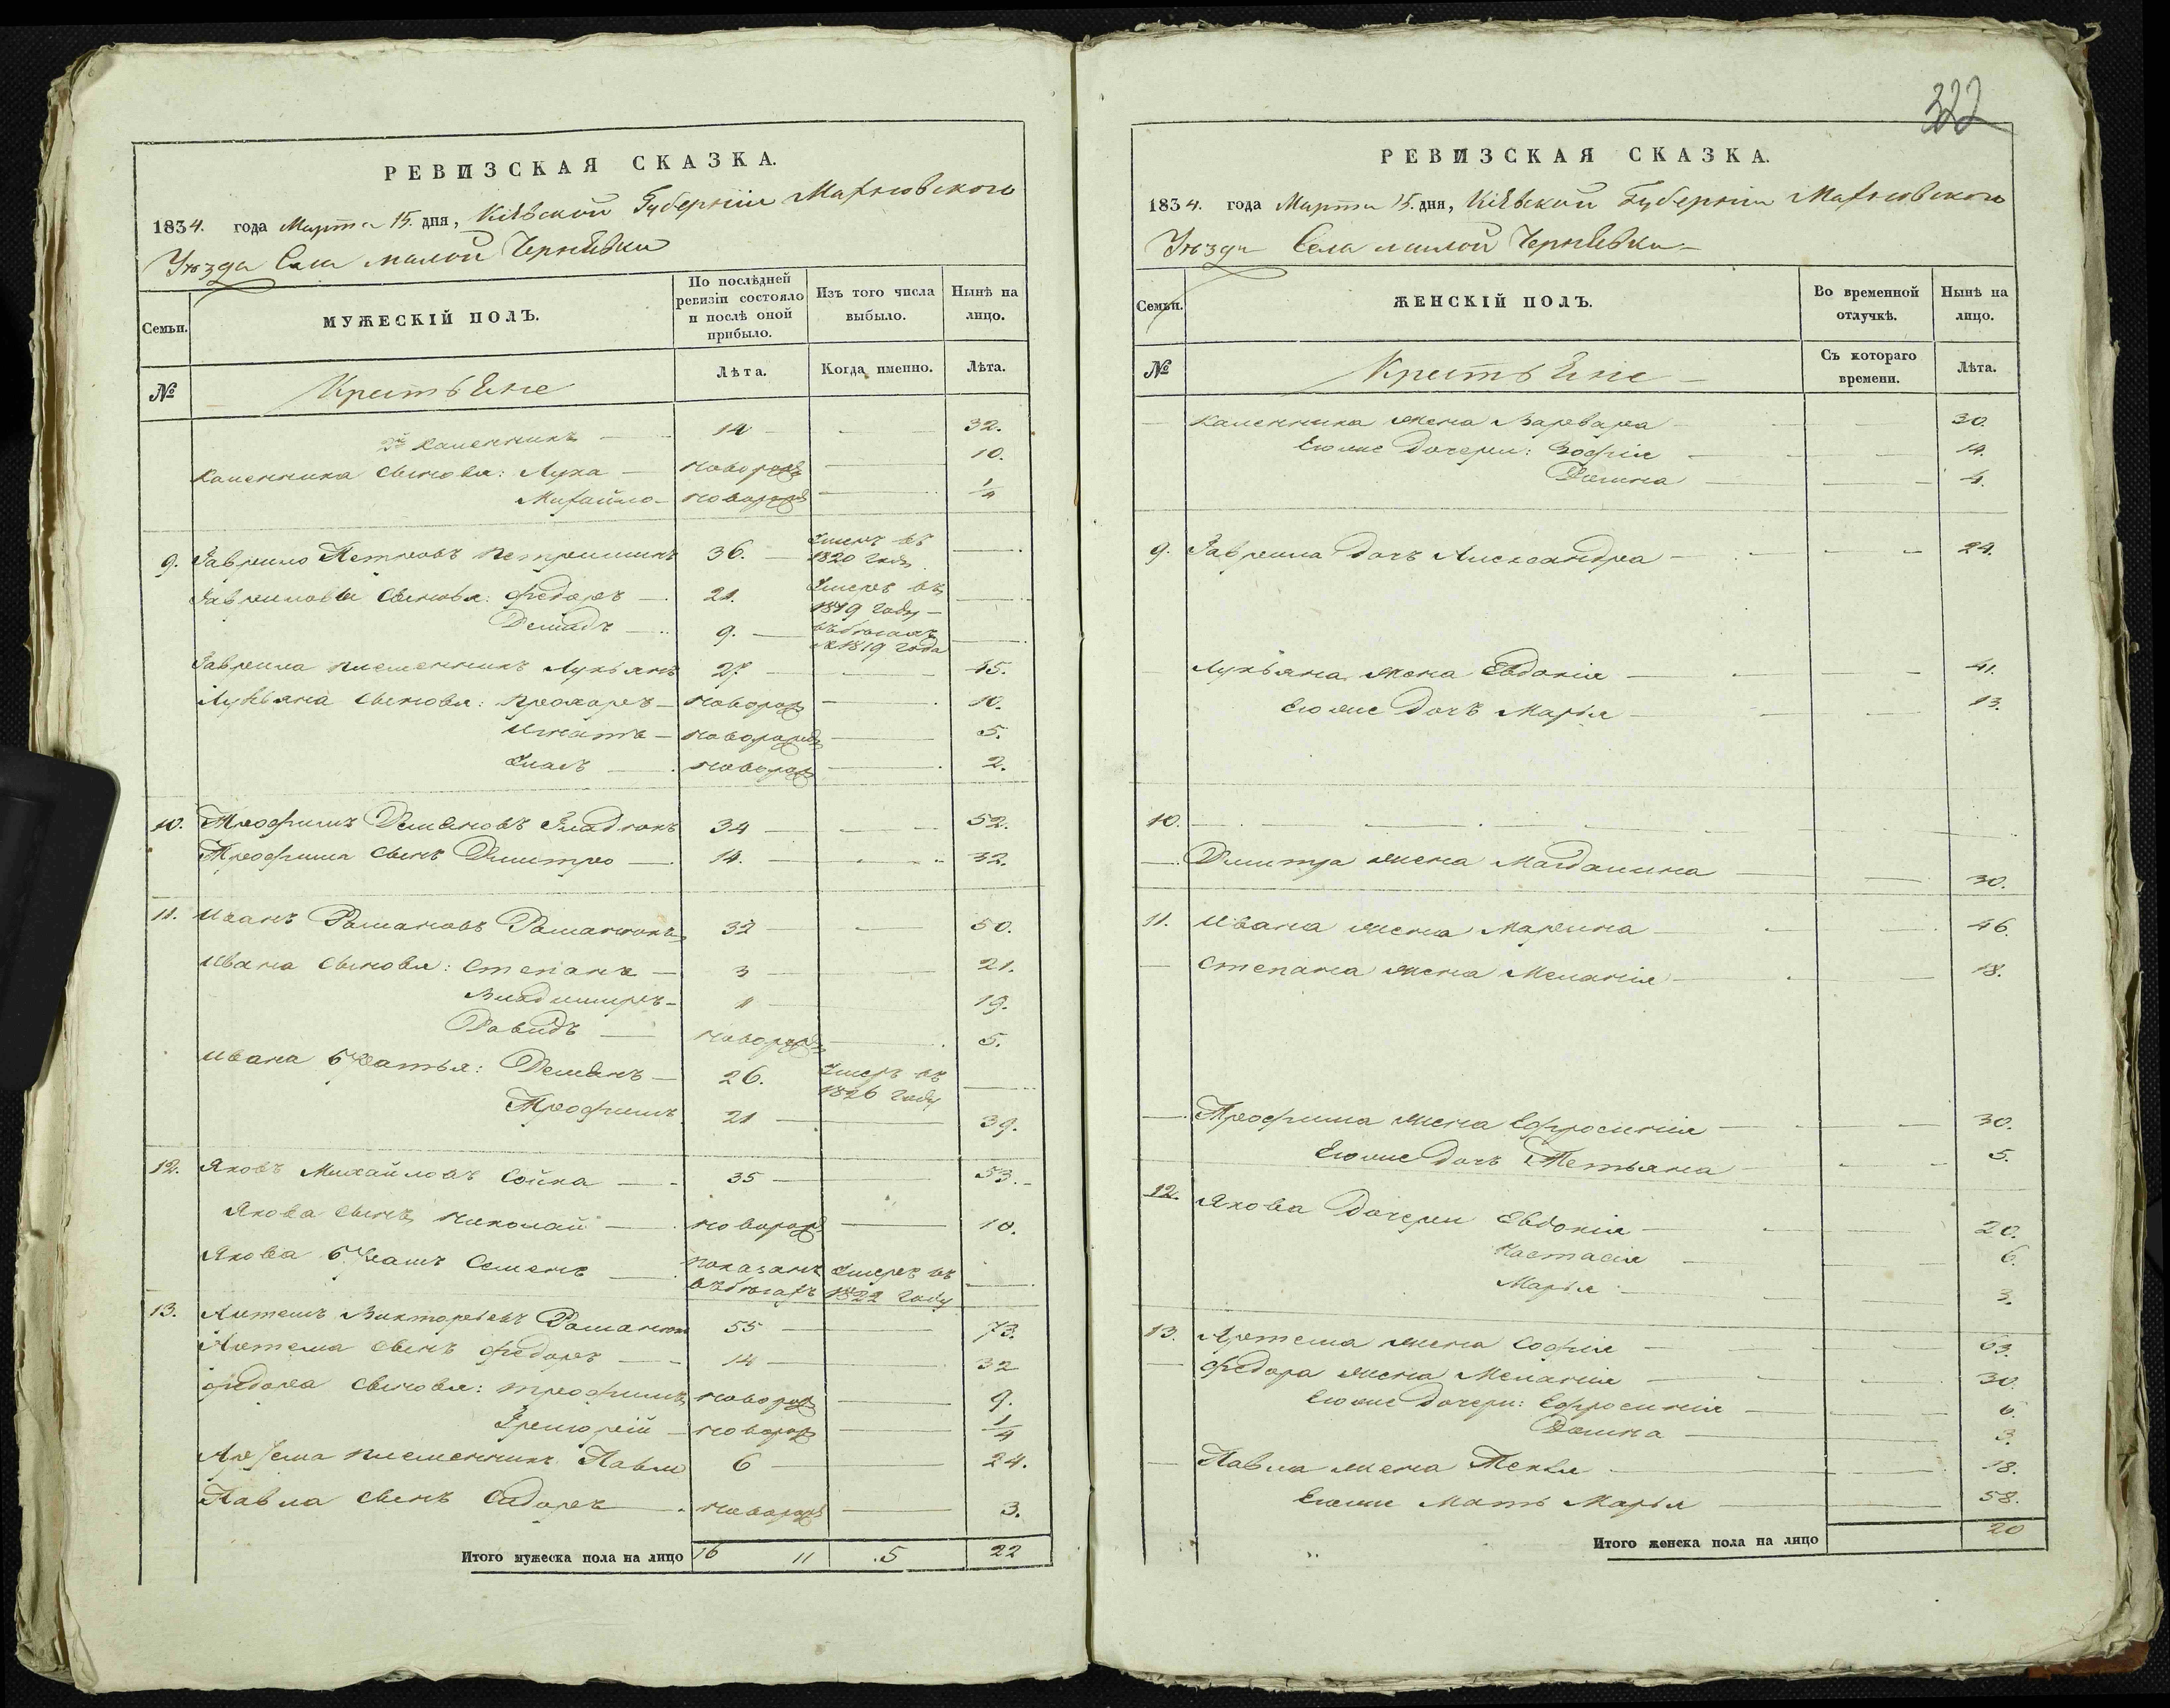 РЕВИЗСКАЯ СКАЗКА.
1834. года Марта 15. дня, Кіевской Губерніи Махновского
Уѣзда Села малой Чернѣвки
Семьи.
МУЖЕСКІЙ ПОЛЪ.
По послѣдней ревизіи состояло и послѣ оной прибыло.
Изъ того числа выбыло.
Нынѣ на лицо.
№
Крестьяне
Лѣта.
Когда именно.
Лѣта.
2й Каленникъ 14 32.
Каленника сыновья: Лука новорожд 10.
Михайло новорожд 1/4
9. Гаврило Петровъ Петришинъ 36. Умеръ въ 1820 году
Гавриловы сыновья: Федоръ 21. Умеръ въ 1819 году
Демидъ 9. въ бѣгахъ съ 1819 года
Гаврила племенникъ Лукьянъ 27. 45.
Лукьяна сыновья: Прохоръ новорожд 10.
Игнатъ новорожд 5.
Власъ новорожд 2.
10. Трофимъ Демяновъ Гладюкъ 34 52.
Трофима сынъ Дмитро 14. 32.
11. Иванъ Романовъ Романюкъ 32 50.
Ивана сыновья: Степанъ 3 21.
Владимиръ 1 19.
Давидъ новорожд 5.
Ивана братья: Демянъ 26. Умеръ въ 1826 году
Трофимъ 21 39.
12. Яковъ Михайловъ Сойка 35 53.
Якова сынъ Николай новорожд 10.
Якова братъ Семенъ показанъ въ бѣгахъ Умеръ въ 1822 году
13. Артемъ Викторьевъ Романюкъ 55 73.
Артема сынъ Федоръ 14 32
Федора сыновья: Трофимъ новорожд 9.
Григорій новорожд 1/4
Артема племенникъ Павло 6 24.
Павла сынъ Сидоръ новорожд 3.
Итого мужеска пола на лицо 16 11 5 22
322
РЕВИЗСКАЯ СКАЗКА.
1834. года Марта 15. дня, Кіевской Губерніи Махновского
Уѣзда Села малой Чернѣвки
Семьи.
ЖЕНСКІЙ ПОЛЪ.
Во временной отлучкѣ.
Нынѣ на лицо.
№
Крестьяне
Съ котораго времени.
Лѣта.
Каленника жена Варвара 30.
Его же дочери: Зофія 14.
Домна 4.
9. Гаврила дочь Александра 24.
Лукьяна жена Евдокія 41.
Его же дочь Марья 13.
10.
Дмитра жена Магдалина 30.
11. Ивана жена Марина 46.
Степана жена Меланія 18.
Трофима жена Ефросинія 30.
Его же дочь Тетьяна 5.
12. Якова дочери Евдокія 20.
Настасія 6.
Марья 3.
13. Артема жена Софія 63.
Федора жена Меланія 30.
Его же дочери: Ефросинія 6.
Домна 3.
Павла жена Текля 18.
Его же мать Марья 58.
Итого женска пола на лицо 20